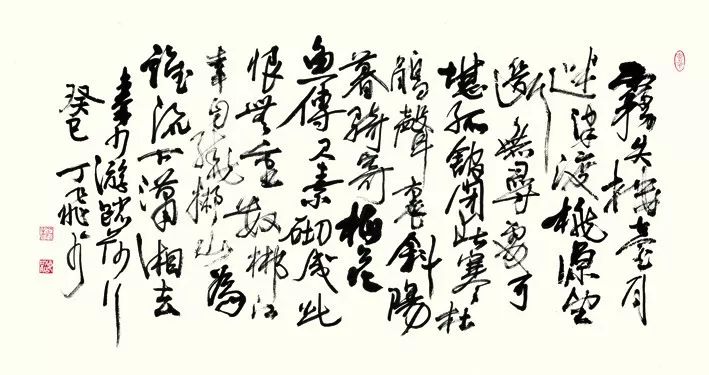 霧失樓臺月
迷津渡桃源望
斷無尋處可
堪孤館閉春寒杜
鵑聲裏斜陽
暮驛寄梅花
魚傳尺素砌成此
恨無重數郴江
幸自繞郴山為
誰流下瀟湘去
秦少游踏莎行
癸巳 丁